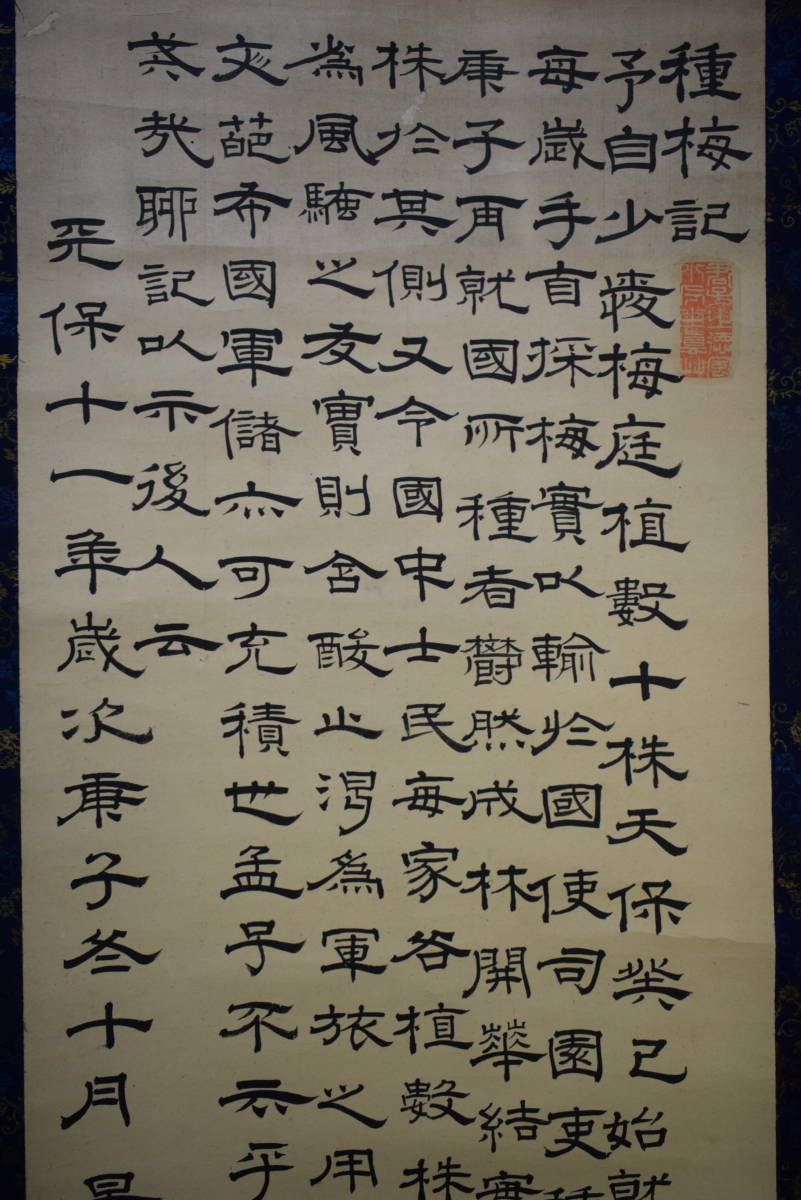 種梅記
予自少愛梅庭植數十株天保癸巳始就
每歲手自採梅實以輸於國使司園吏種
庚子再就國所種者鬱然成林開華結實
株於其側又令國中士民每家各植數株
為風騷之友實則含酸止渴為軍旅之用
文葩布國軍儲亦可充積也孟子不云乎
哉聊記以示後人云
天保十一年歲次庚子冬十月